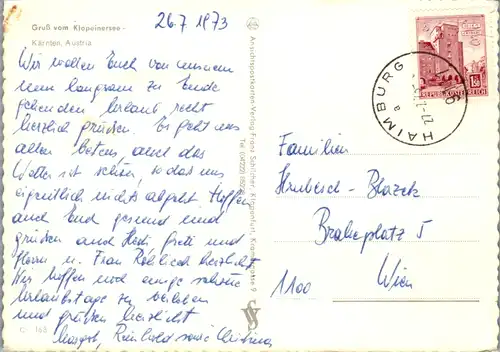 Gruß vom Klopeinersee -
Kärnten, Austria
26.7 1973
Wir wollen Euch von unserem
nun langsam zu Ende
gehenden Urlaub recht
herzlich grüßen. Es geht uns
allen bestens, auch das
Wetter ist schön, so daß uns
eigentlich nichts abgeht. Hoffen
auch Euch gesund und
grüßen auch Hedi, Gretl und
Herrn u. Frau herzlichst.
Wir hoffen noch einige schöne
Urlaubstage zu erleben
und grüßen herzlichst
Margot, Reinhold sowie
C 168
Ansichtspostkarten-Verlag Franz Schilcher, Klagenfurt,
Tel. (04222)
HAIMBURG
REPUBLIK ÖSTERREICH
Familien
Hrubesch - Blazek
Brahmsplatz 5
1100 Wien